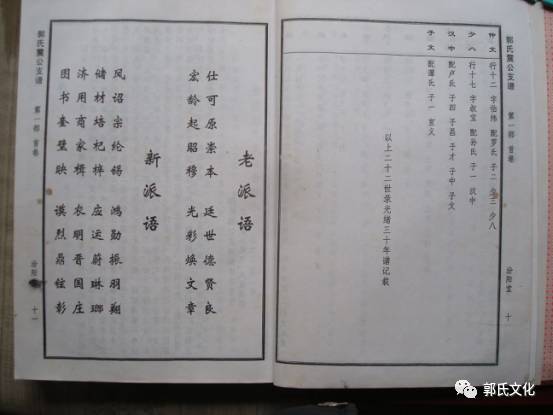 支谱 第一部 首卷 汾阳堂 十
仲文 行十二 配罗氏 子二 少八
少八 行十七 字叔宝 配孙氏 子一 汉中
汉中 配卢氏 子四 子昌 子才 子中 子文
子文 子一
以上二十二世录光绪三十年谱记载
老派语
仕可原崇本 廷世德贤良
宏龄起昭穆 光彩焕文章
新派语
风诏宗纶锡 鸿勋振羽翔
储材培杞梓 应运蔚琳琅
济用商家楫 农明晋国庄
图书奎壁映 谟烈鼎铉彰
支谱 第一部 首卷 汾阳堂 十一
郭氏文化